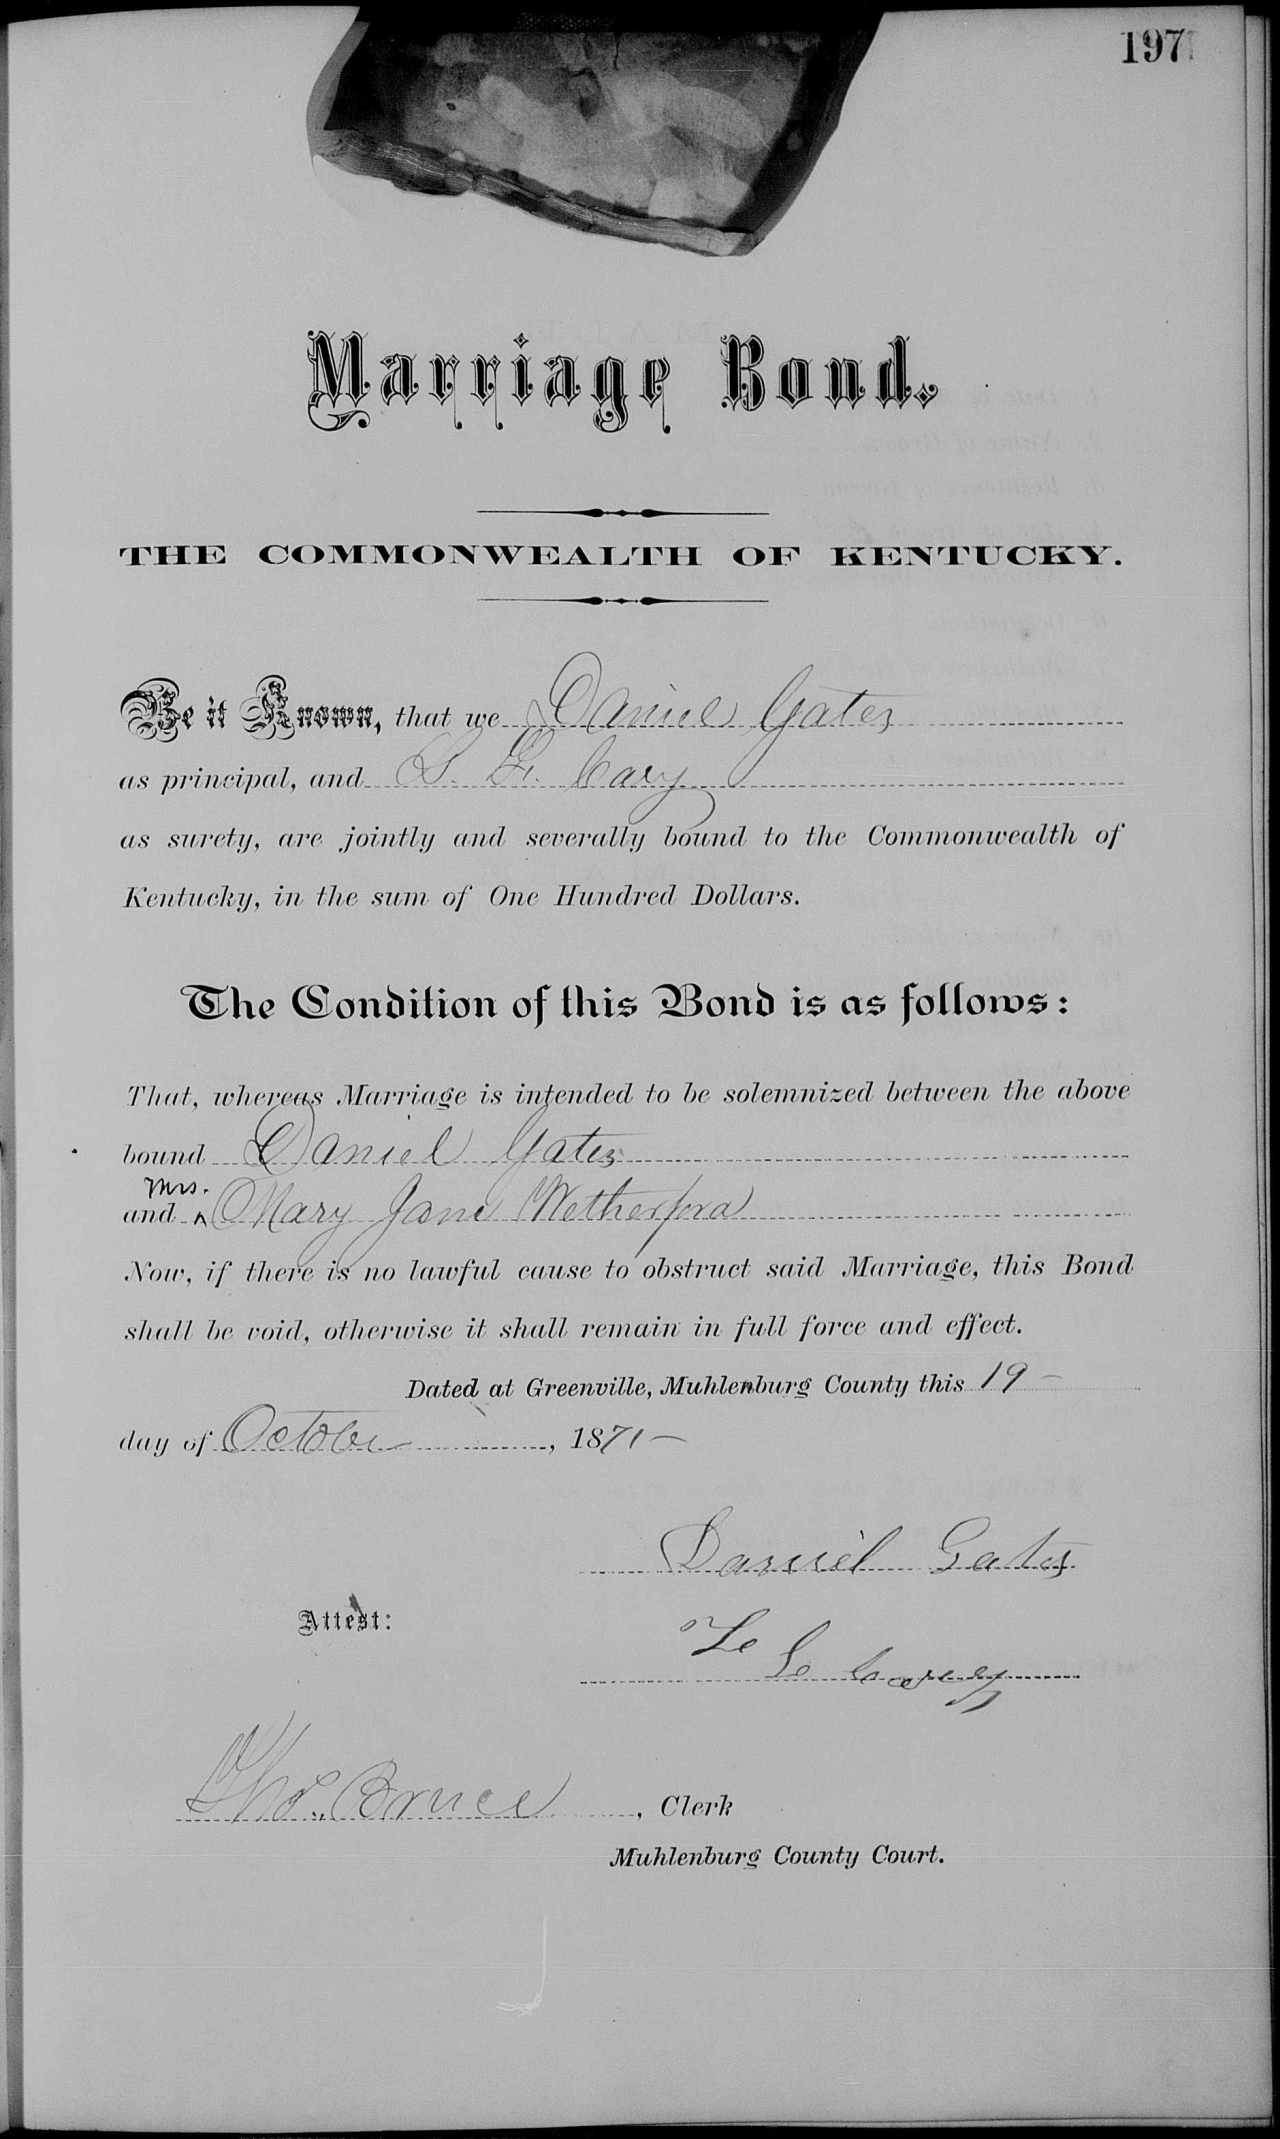 197
Marriage Bond.
THE COMMONWEALTH OF KENTUCKY.
Be it Known, that we Daniel Gates
as principal, and Cary
as surety, are jointly and severally bound to the Commonwealth of
Kentucky, in the sum of One Hundred Dollars.
The Condition of this Bond is as follows:
That, whereas Marriage is intended to be solemnized between the above
bound Daniel Gates
Mrs.
and ^ Mary Jane Wetherford
Now, if there is no lawful cause to obstruct said Marriage, this Bond
shall be void, otherwise it shall remain in full force and effect.
Dated at Greenville, Muhlenburg County this 19 -
day of October, 1871 -
Daniel Gates
Attest:
Thos. Bruce, Clerk
Muhlenburg County Court.